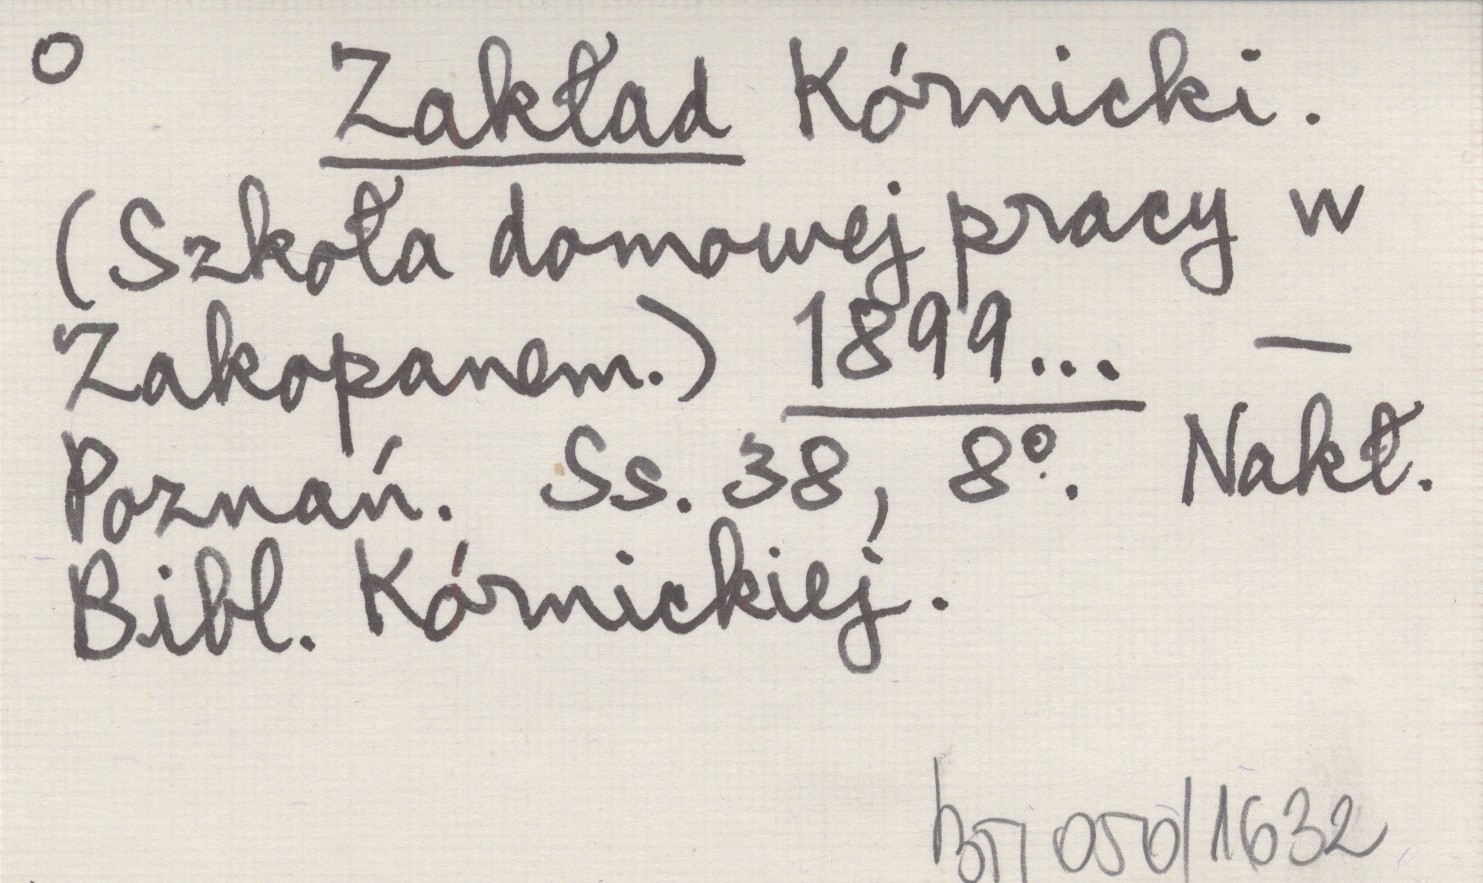 o Zakład Kórnicki.
(Szkoła domowej pracy w
Zakopanem.) 1899... —
Poznań. Ss. 38, 8°. Nakł.
Bibl. Kórnickiej.
050/1632